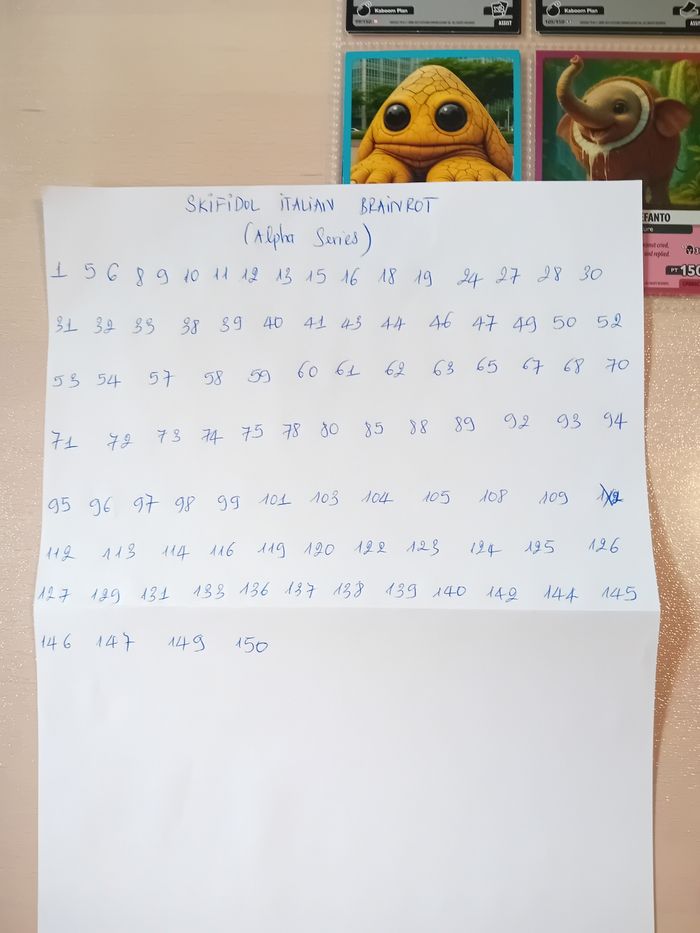 Kaboom Plan
ASSIST
Kaboom Plan
EFANTO
PT 150
SKIFIDOL ITALIAN BRAINROT
(Alpha Series)
1 5 6 8 9 10 11 12 13 15 16 18 19 24 27 28 30
31 32 33 38 39 40 41 43 44 46 47 49 50 52
53 54 57 58 59 60 61 62 63 65 67 68 70
71 72 73 74 75 78 80 85 88 89 92 93 94
95 96 97 98 99 101 103 104 105 108 109
112 113 114 116 119 120 122 123 124 125 126
127 129 131 133 136 137 138 139 140 142 144 145
146 147 149 150